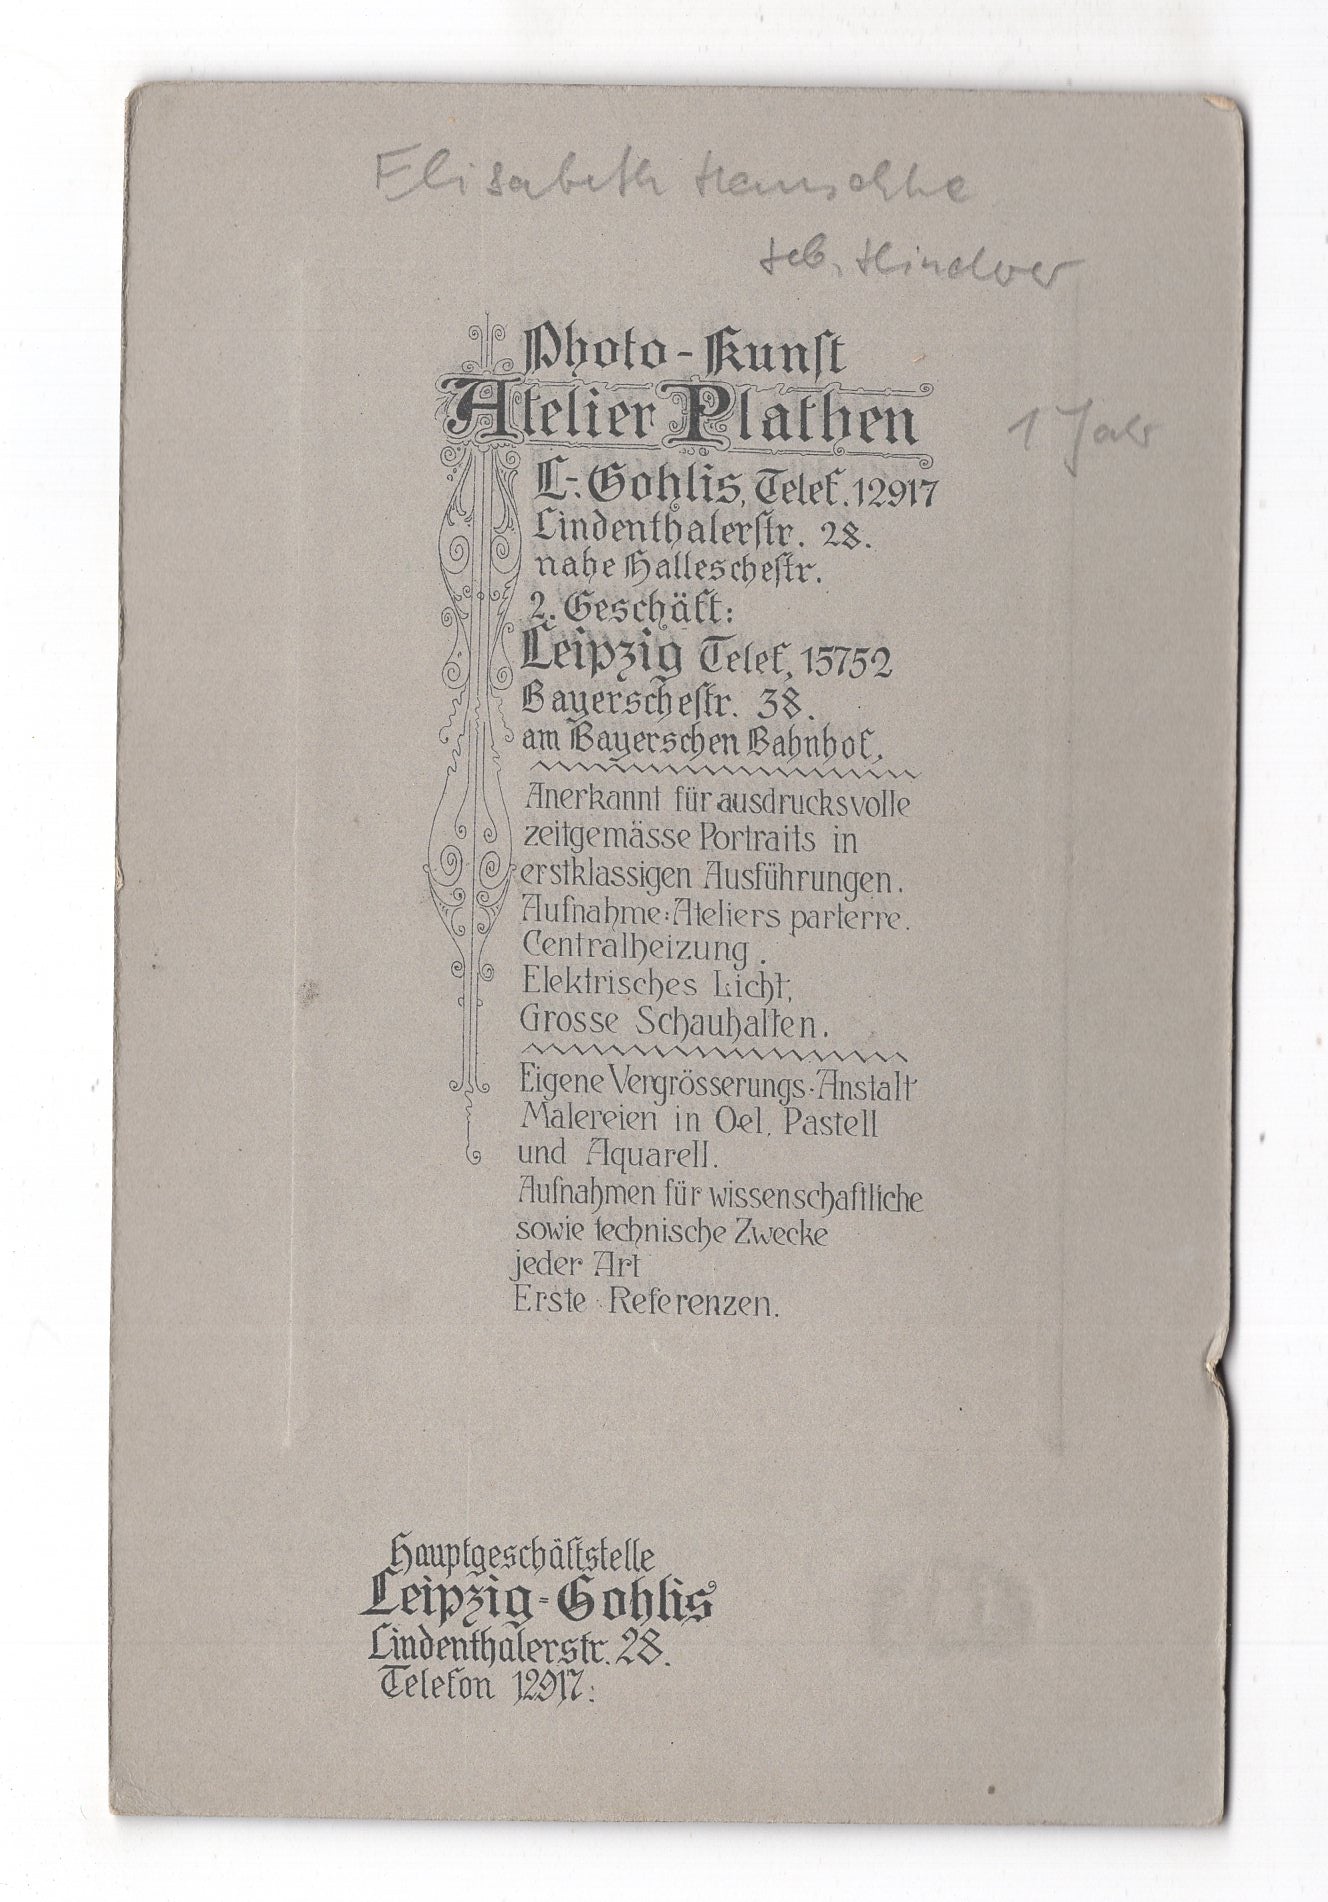 Elisabeth
geb.
Photo-Kunst
Atelier Plathen
1 Jahr
L.-Gohlis, Telef. 12917
Lindenthalerstr. 28.
nahe Halleschestr.
2. Geschäft:
Leipzig Telef. 15752
Bayerschestr. 38.
am Bayerschen Bahnhof.
Anerkannt für ausdrucksvolle
zeitgemässe Portraits in
erstklassigen Ausführungen.
Aufnahme-Ateliers parterre.
Centralheizung.
Elektrisches Licht.
Grosse Schauhalten.
Eigene Vergrösserungs-Anstalt
Malereien in Oel, Pastell
und Aquarell.
Aufnahmen für wissenschaftliche
sowie technische Zwecke
jeder Art
Erste Referenzen.
Hauptgeschäftstelle
Leipzig-Gohlis
Lindenthalerstr. 28.
Telefon 12917.